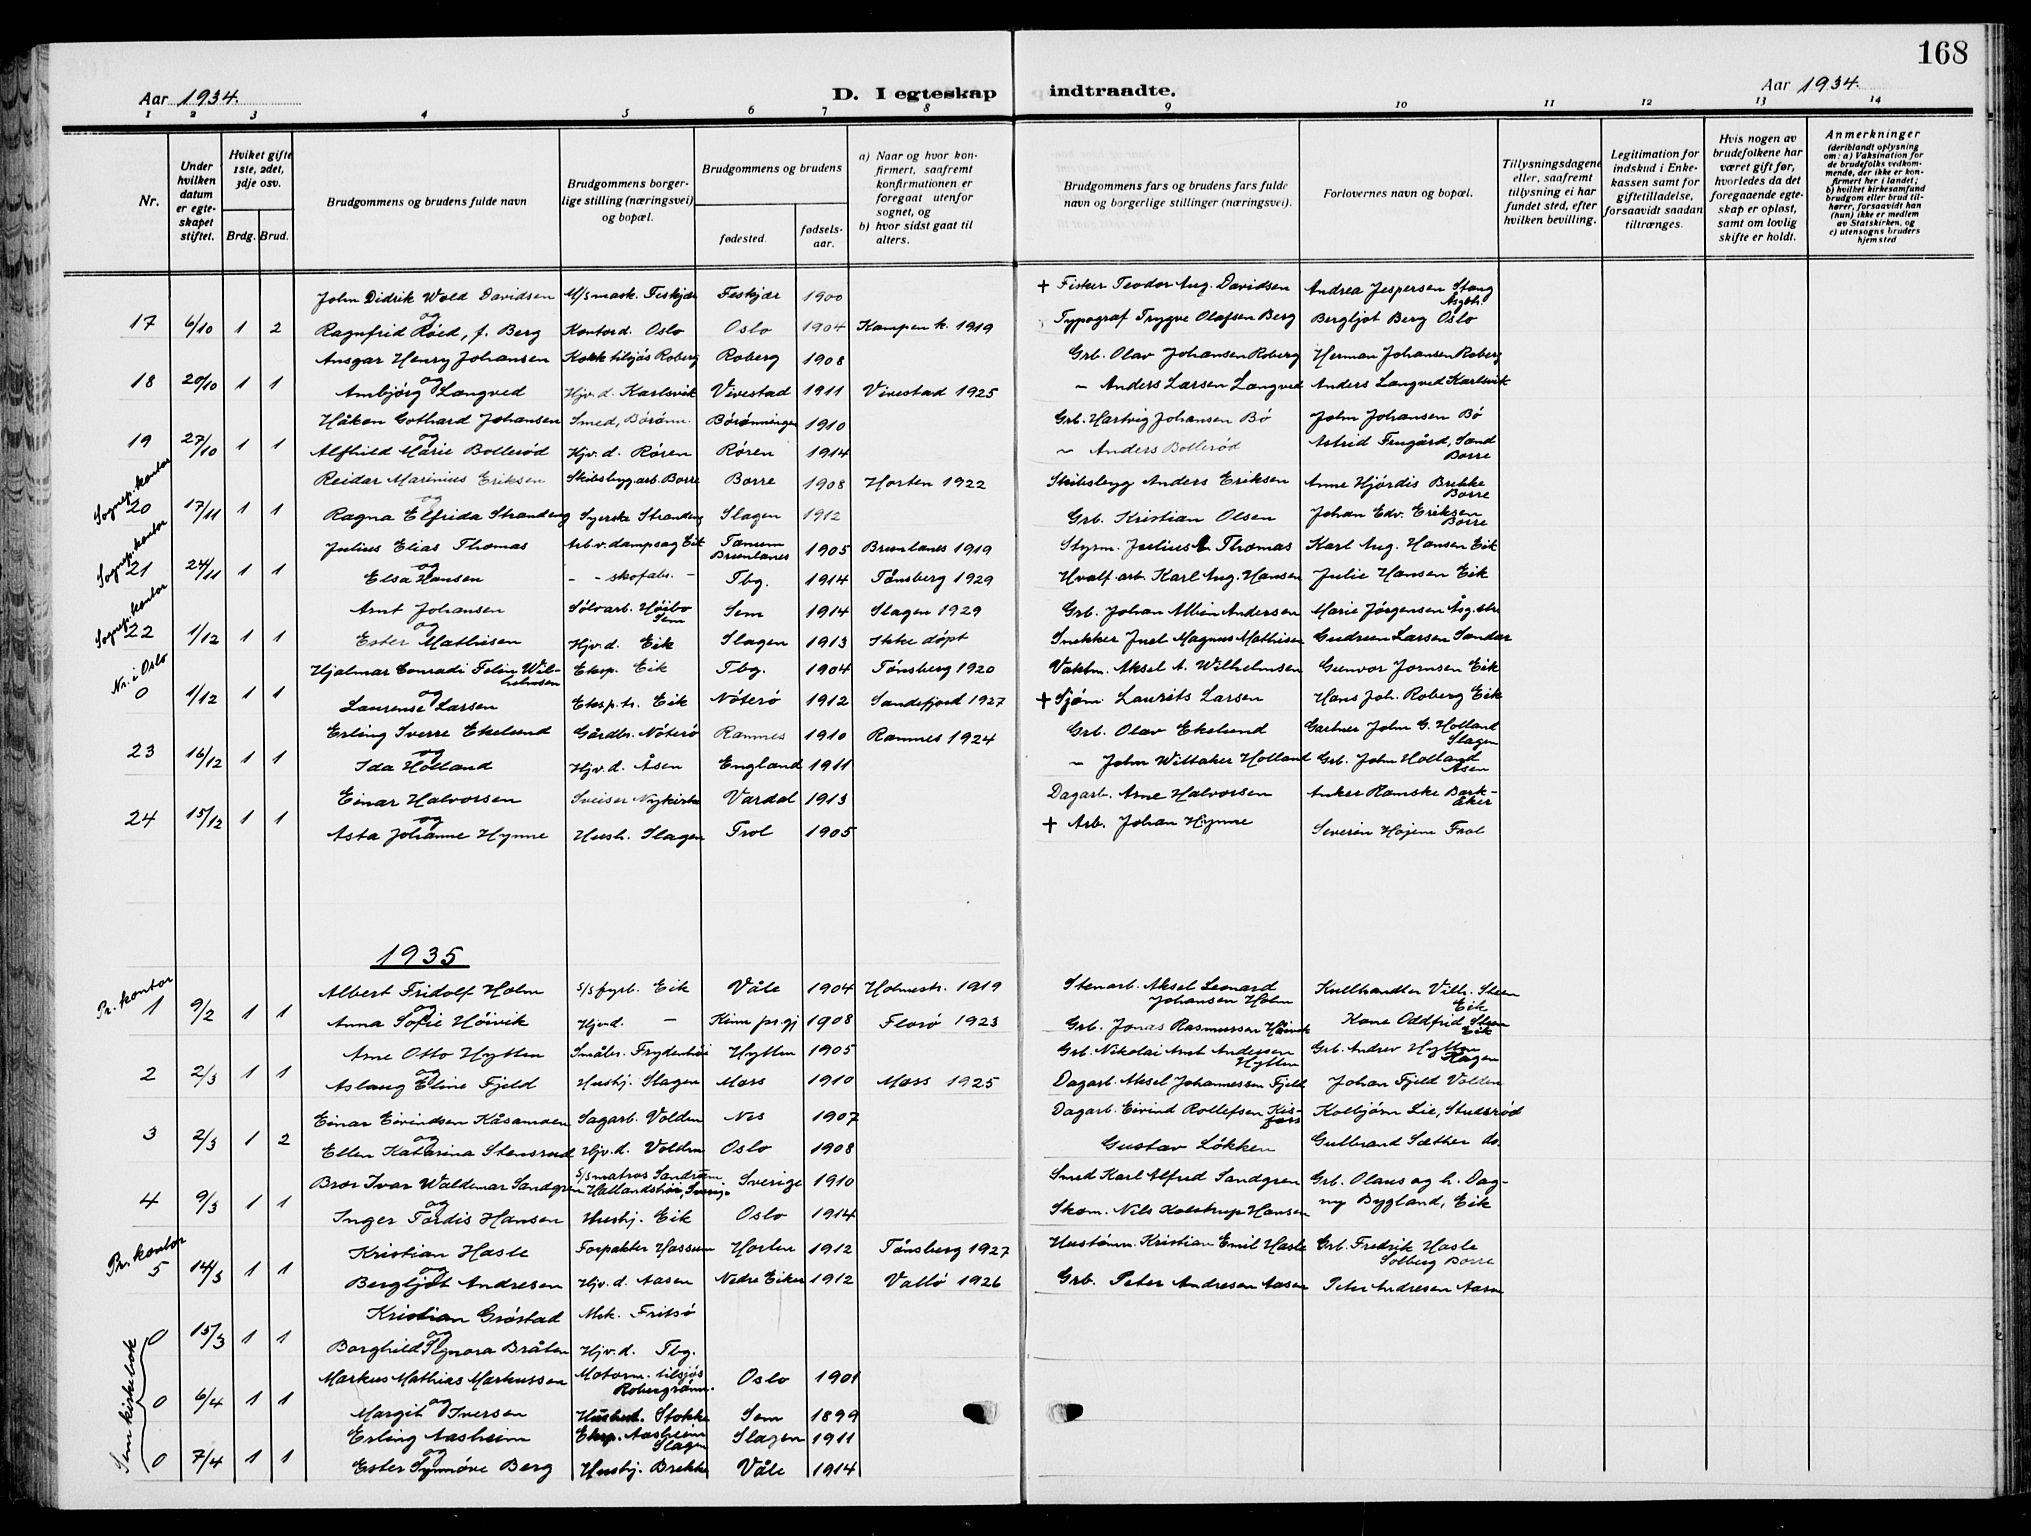 168
Aar 1934.
D. I egteskap indtraadte.
Aar 1934.
1 2 3 4 5 6 7 8 9 10 11 12 13 14
Nr.
Under hvilken datum er egteskapet stiftet.
Hviket gifte 1ste, 2det, 3dje osv.
Brdg. Brud.
Brudgommens og brudens fulde navn
Brudgommens borgerlige stilling (næringsvei) og bopæl.
Brudgommens og brudens
fødested.
fødselsaar.
a) Naar og hvor konfirmert, saafremt konfirmationen er foregaat utenfor sognet, og
b) hvor sidst gaat til alters.
Brudgommens fars og brudens fars fulde navn og borgerlige stillinger (næringsvei).
Forlovernes navn og bopæl.
Tillysningsdagene eller, saafremt tillysning ei har fundet sted, efter hvilken bevilling.
Legitimation for indskud i Enkekassen samt for giftetilladelse, forsaavidt saadan tiltrænges.
Hvis nogen av brudefolkene har været gift før, hvorledes da det foregaaende egteskap er opløst, samt om lovlig skifte er holdt.
Anmerkninger
(deriblandt oplysning om: a) Vaksination for de brudefolks vedkommende, der ikke er konfirmert her i landet; b) hvilket kirkesamfund brudgom eller brud tilhører, forsaavidt han (hun) ikke er medlem av Statskirken, og c) utensogns bruders hjemsted
John Didrik Wold Davidsen M/s mask. Feskjær Feskjær 1900 + Fisker Teodor Aug. Davidsen Andrea Jespersen Stang Asgbr.
17 6/10 1 2 og
Ragnfrid Røed, f. Berg Kontord. Oslo Oslo 1904 Kampen k. 1919 Typograf Trygve Olafsen Berg Bergljot Berg Oslo
Ansgar Henry Johansen Kokk tilsjøs Roberg Roberg 1908 Grb. Olav Johansen Roberg Herman Johansen Roberg
18 20/10 1 1 og
Ambjørg Langved Hjv. d. Karlsvik Vivestad 1911 Vivestad 1925 ~ Anders Larsen Langved Anders Langved Karlsvik
Håkon Gothard Johansen Smed, Bòrønn. Børønningen 1910 Grb. Hartvig Johansen Bø John Johansen Bø
19 27/10 1 1 og
Alfhild Marie Bollerød Hjv. d. Røren Røren 1914 ~ Anders Bollerød Astrid Frugård, Sand Borre
Sognep. kontor
Reidar Marinius Eriksen Skibsbyg. arb. Borre Borre 1908 Horten 1922 Skibsbyg Anders Eriksen Anne Hjördis Brekke Borre
20 17/11 1 1 og
Ragna Elfrida Strandeng Syerske Strandeng Slagen 1912 Grb. Kristian Olsen Johan Edv. Eriksen Borre
Sognep. kontor
Julius Elias Thomas Arb. v. dampsag Eik Tanum Brunlanes 1905 Brunlanes 1919 Styrm. Julius E Thomas Karl Aug. Hansen Eik
21 24/11 1 1 og
Elsa Hansen - - skofabr. - Tbg. 1914 Tønsberg 1929 Hvalf. arb. Karl Aug. Hansen Julie Hansen Eik
Sognep. kontor
Arnt Johansen Sølvarb. Høibo Sem Sem 1914 Slagen 1929 Grb. Johan Albin Andersen Marie Jørgensen Åsg. str
22 1/12 1 1 og
Ester Mathisen Hjv. d. Eik Slagen 1913 Ikke døpt Snekker Juel Magnus Mathisen Gudrun Larsen Sandar
Nr. i Oslo
Hjalmar Conradi Felin Wilhelmsen Eksp. Eik Tbg. 1904 Tønsberg 1920 Vaktm. Aksel A. Wilhelmsen Gunvor Jornsen Eik
0 1/12 1 1 og
Laurense Larsen Eksp. tr. Eik Nøterø 1912 Sandefjord 1927 + Sjøm. Laurits Larsen Hans Joh. Roberg Eik
Erling Sverre Ekelund Gårdbr. Nøterø Ramnes 1910 Ramnes 1924 Grb. Olav Ekelund Gartner John G. Holland Slagen
23 16/12 1 1 og
Ida Holland Hjv. d. Åsen England 1911 ~ John Wittaker Holland Grb. John Holland Åsen
Einar Halvorsen Sveiser Nykirke Vardal 1913 Dagarb. Arne Halvorsen Anker Ramske Barkåker
24 15/12 1 1 og
Asta Johanne Hynne Hush. Slagen Frol 1905 + Arb. Johan Hynne Severin Hojem Frol
1935
Pr. kontor
Albert Fridolf Holm S/S fyrb. Eik Våle 1904 Holmestr. 1919 Stenarb. Aksel Leonard Johansen Holm Kullhandler Vilh. Steen Eik
1 9/2 1 1 og
Anna Sofie Höivik Hjv. d. - Kinn pr.gj 1908 Florø 1923 Grb. Jonas Rasmussen Höivik Kone Oddfrid Steen Eik
Arne Otto Hytten Småbr. Frydenhøi Hytten 1905 Grb. Nikolai Arnt Anderssen Hytten Grb. Andrew Hytten Slagen
2 2/3 1 1 og
Aslaug Eline Fjeld Hushj. Slagen Moss 1910 Moss 1925 Dagarb. Aksel Johannessen Fjeld Johan Fjeld Volden
Einar Eivindsen Kåsamoen Sagarb. Volden Nes 1907 Dagarb. Eivind Rollefsen Kisfoss Kolbjørn Lie, Studsrød
3 2/3 1 2 og
Ellen Katarina Stensrud Hjv. d. Volden Oslo 1908 Gustav Løkken Gulbrand Sæther do.
Bror Ivar Waldemar Sandgren S/S matros Sandrum. Hallandshöi, Sverige Sverige 1910 Smed Karl Alfred Sandgren Grb. Olaus og h. Dag-
4 9/3 1 1 og
Inger Tordis Hansen Hushj. Eik Oslo 1914 Skom. Nils Kolstrup Hansen ny Bygland, Eik
Pr. kontor
Kristian Hasle Forpakter Hassum Horten 1912 Tønsberg 1927 Hustømr. Kristian Emil Hasle Grb. Fredrik Hasle Solberg Borre
5 14/3 1 1 og
Bergljot Andresen Hjv. d. Aasen Nedre Eiker 1912 Vallø 1926 Grb. Peter Andresen Aasen Peter Andresen Aasen
Sem kirkebok
Kristian Grøstad Mek. Fritsø
0 15/3 1 1 og
Borghild Signora Bråten Hjv. d. Tbg.
Markus Mathias Markussen Motorm. tilsjøs Robergrønn. Oslo 1901
0 6/4 1 1 og
Margit Iversen Hushol. Stokke Sem 1899
Erling Aasheim Eksp. Aasheim Slagen Slagen 1911
0 7/4 1 1 og
Ester Synnøve Berg Hushj. Brekke Våle 1914